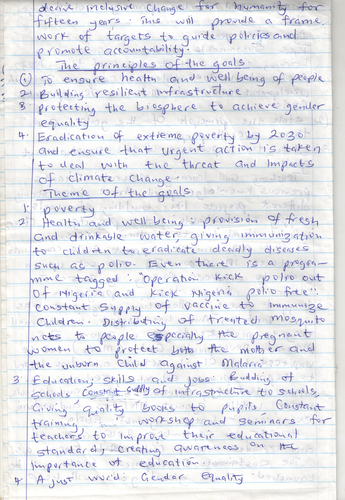 derive inclusive change for humanity for
fifteen years. This will provide a frame
work of targets to guide policies and
promote accountability.
The principles of the goals
1 To ensure health and well being of people
2 Building resilient infrastructure
3 protecting the biosphere to achieve gender
equality
4 Eradication of extreme poverty by 2030
and ensure that urgent action is taken
to deal with the threat and impacts
of climate change.
Theme of the goals
1. poverty
2 Health and well being: provision of fresh
and drinkable water, giving immunization
to children to eradicate deadly diseases
such as polio. Even there is a progra-
mme tagged: "Operation kick polio out
of Nigeria and kick Nigeria polio free".
Constant supply of vaccine to immunize
children. Distributing of treated mosquito
nets to people especially the pregnant
women to protect both the mother and
the unborn child against malaria
3 Education, skills and jobs: Building of
schools constant supply of infrastructure to schools,
Giving quality books to pupils, Constant
training, workshop and seminars for
teachers to improve their educational
standard, creating awareness on the
importance of education.
4 A just world: Gender equality